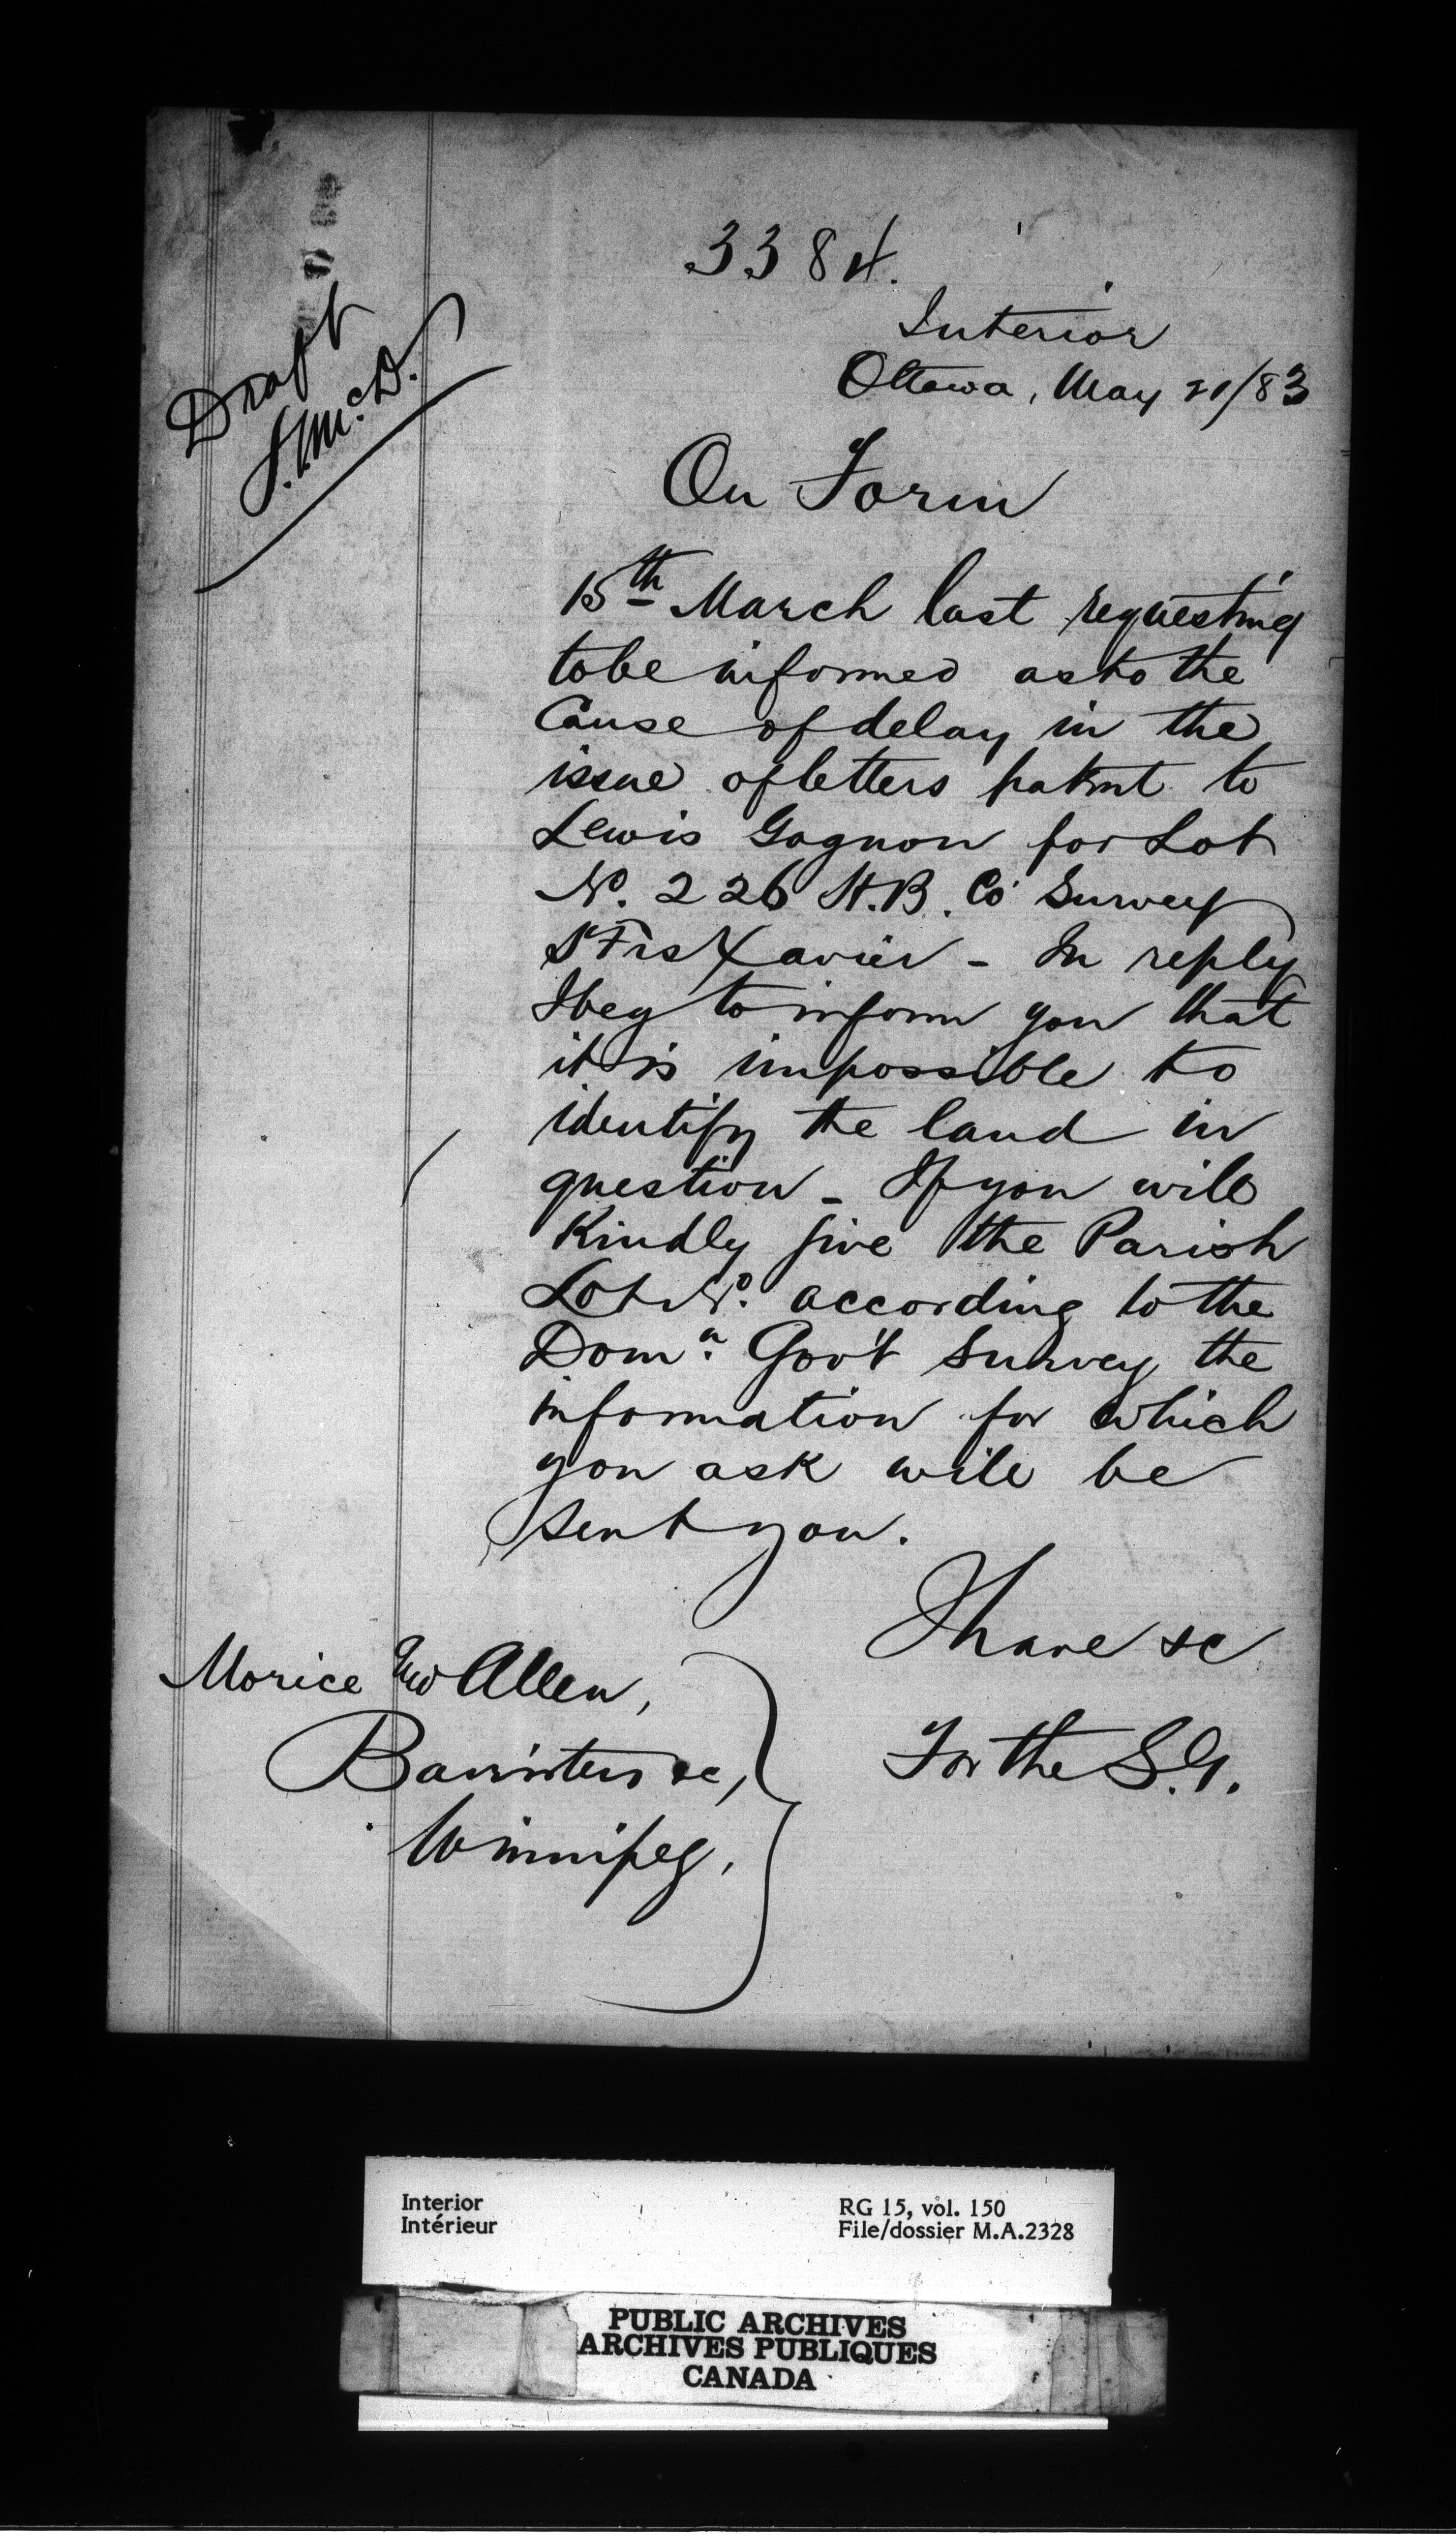 3384.
Interior
Ottawa, May 21/83
Draft
J. McD.
On Form
15th March last requesting
to be informed as to the
Cause of delay in the
issue of letters patent to
Lewis Gagnon for Lot
No. 226 H.B. Co Survey
St Frs Xavier - In reply
I beg to inform you that
it is impossible to
identify the land in
question - If you will
Kindly give the Parish
Lot No. according to the
Domn. Gov't Survey the
information for which
you ask will be
sent you.
I have &c
Morice and Allen,
Barristers &c,
Winnipeg,
For the S.G.
Interior
Intérieur
RG 15, vol. 150
File/dossier M.A.2328
PUBLIC ARCHIVES
ARCHIVES PUBLIQUES
CANADA